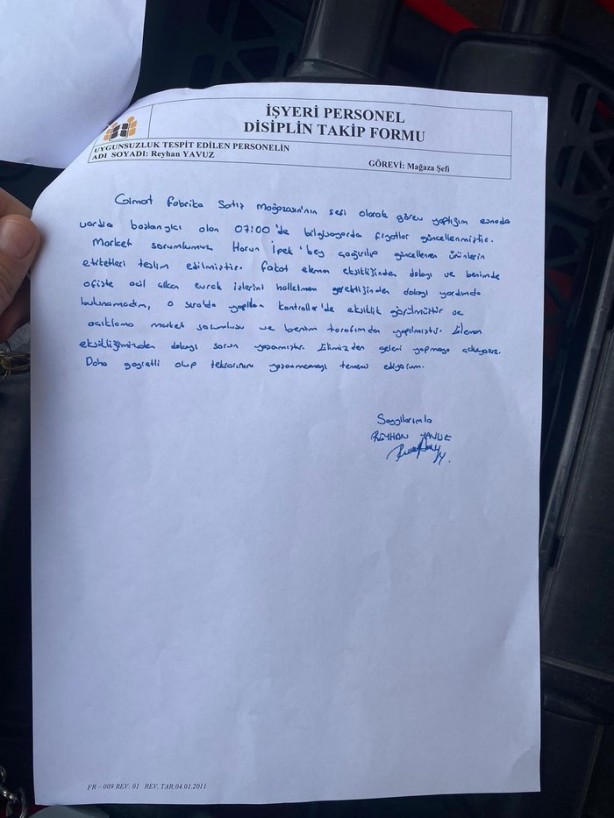 İŞYERİ PERSONEL
DİSİPLİN TAKİP FORMU
UYGUNSUZLUK TESPİT EDİLEN PERSONELİN
ADI SOYADI: Reyhan YAVUZ GÖREVİ: Mağaza Şefi
Fabrika Satış Mağazasının şefi olarak görev yaptığım esnada
vardia başlangıcı olan 07:00'de bilgisayarda fiyatlar güncellenmiştir.
Market sorumlumuz Harun İpek'bey çağırılıp güncellenen ürünlerin
etiketleri teslim edilmiştir. fakat eleman eksikliğinden dolayı ve benimde
ofiste acil olan evrak işlerini halletmem gerektiğinden dolayı yardımda
bulunamadım, o sırada yapılan kontroller'de eksiklik görülmüştür ve
açıklama market sorumlusu ve benim tarafımdan yapılmıştır. Eleman
eksikliğimizden dolayı sorun yaşanmıştır. Elimizden geleni yapmaya
Daha gayretli olup tekrarının yaşanmamayı temenni ediyorum.
Saygılarımla
REYHAN YAVUZ
FR – 009 REV. 01 REV. TAR.04.01.2011